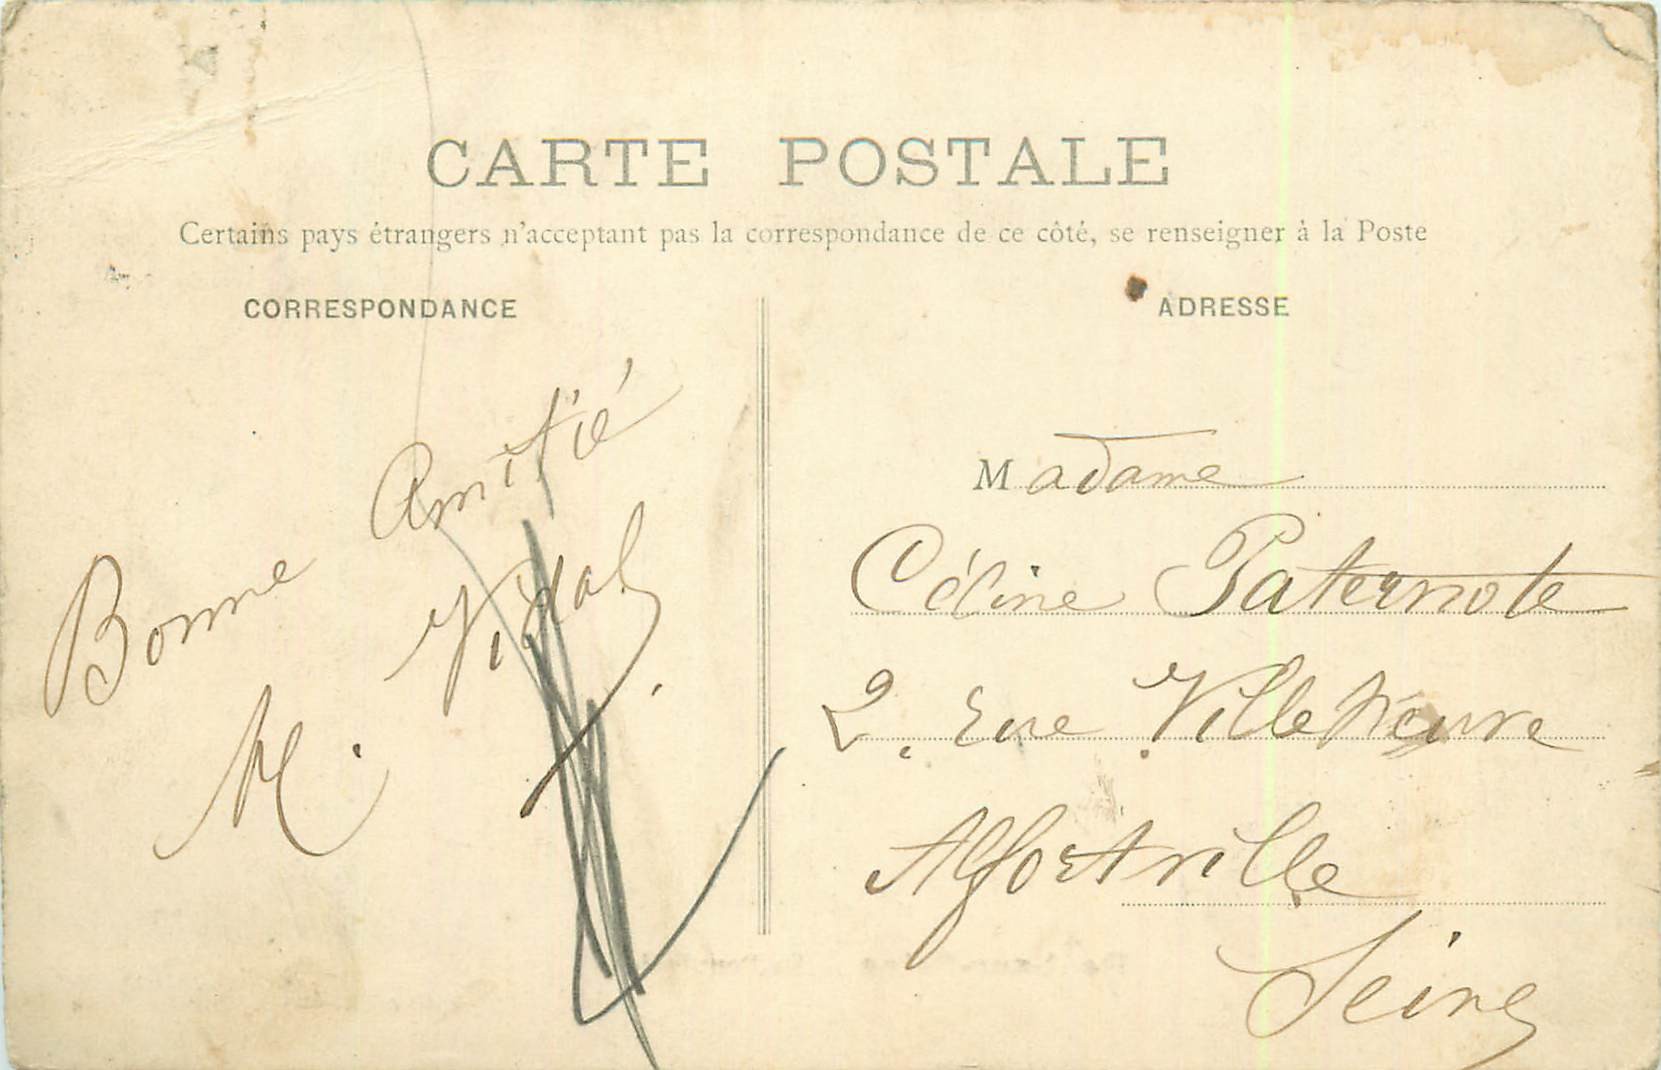 CARTE POSTALE
Certains pays étrangers n'acceptant pas la correspondance de ce côté, se renseigner à la Poste
CORRESPONDANCE
Bonne Amitié
M. Vidal
ADRESSE
Madame
Céline Paternote
2. rue Villeneuve
Alfortville
Seine